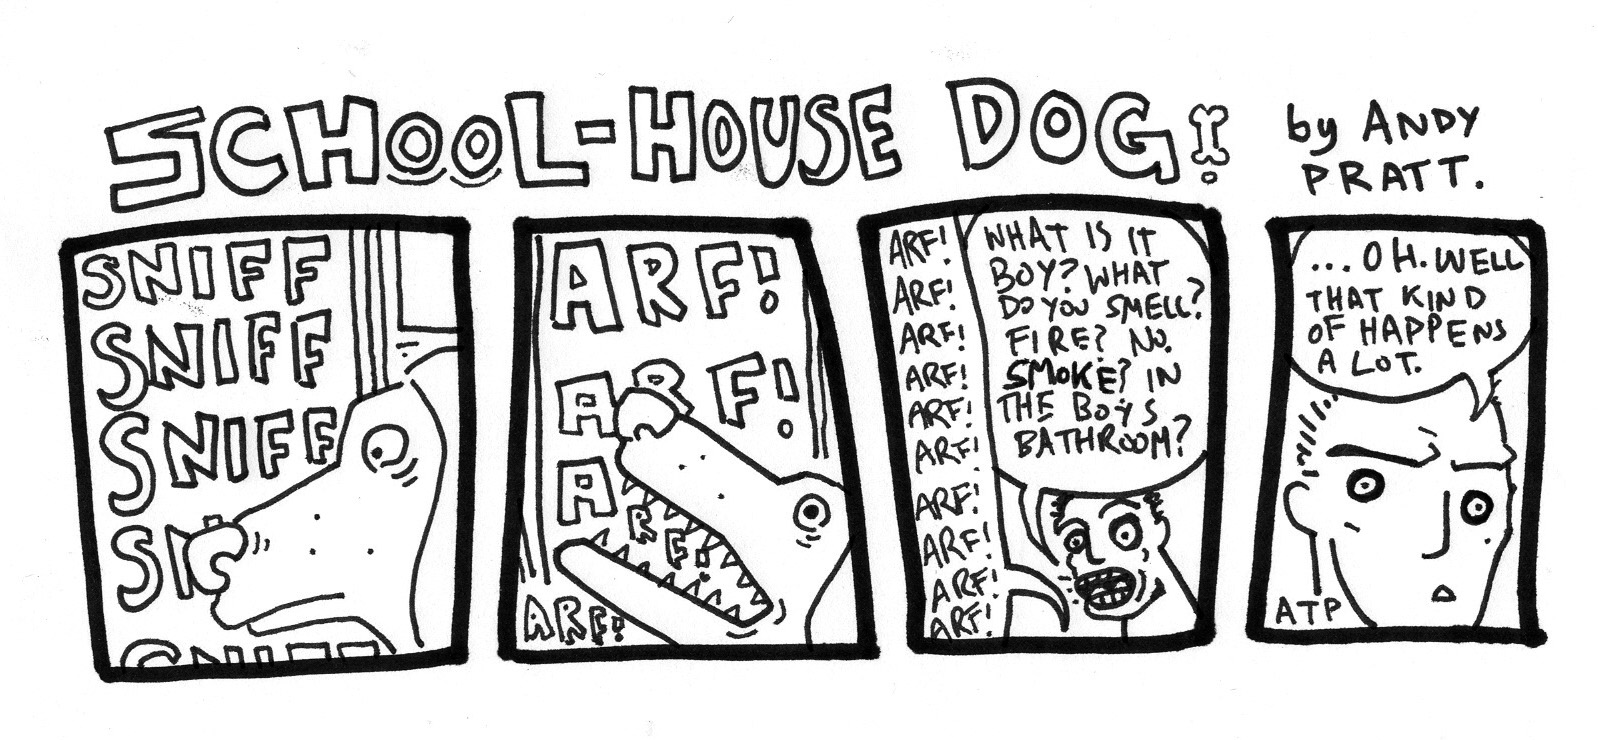 SCHOOL-HOUSE DOG!
by ANDY
PRATT.
SNIFF
SNIFF
SNIFF
SNIFF
ARF!
ARF!
ARF!
ARF!
ARF!
ARF!
ARF!
ARF!
ARF!
ARF!
ARF!
ARF!
ARF!
ARF!
WHAT IS IT
BOY? WHAT
DO YOU SMELL?
FIRE? NO.
SMOKE? IN
THE BOYS
BATHROOM?
...OH. WELL
THAT KIND
OF HAPPENS
A LOT.
ATP